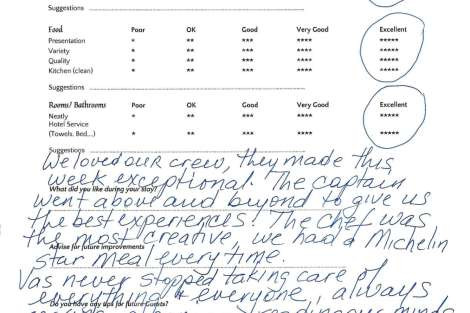 Suggestions
Food Poor OK Good Very Good Excellent
Presentation * ** *** **** *****
Variety * ** *** **** *****
Quality * ** *** **** *****
Kitchen (clean) * ** *** **** *****
Suggestions
Rooms/ Bathrooms Poor OK Good Very Good Excellent
Neatly * ** *** **** *****
Hotel Service
(Towels, Bed,..) * ** *** **** *****
Suggestions
We loved our crew, they made this
week exceptional. The captain
What did you like during your stay?
went above and beyond to give us
the best experiences! The chef was
the most creative, we had a Michelin
Advise for future improvements
star meal every time.
Vas never stopped taking care of
everything & everyone, always
Do you have any tips for future Guests?
reading our minds